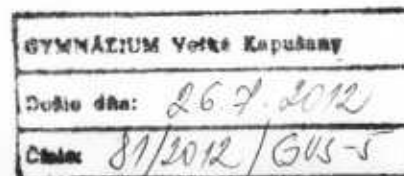 GYMNÁZIUM Veľké Kapušany
Došlo dňa: 26.7.2012
Číslo: 81/2012/GVS-5